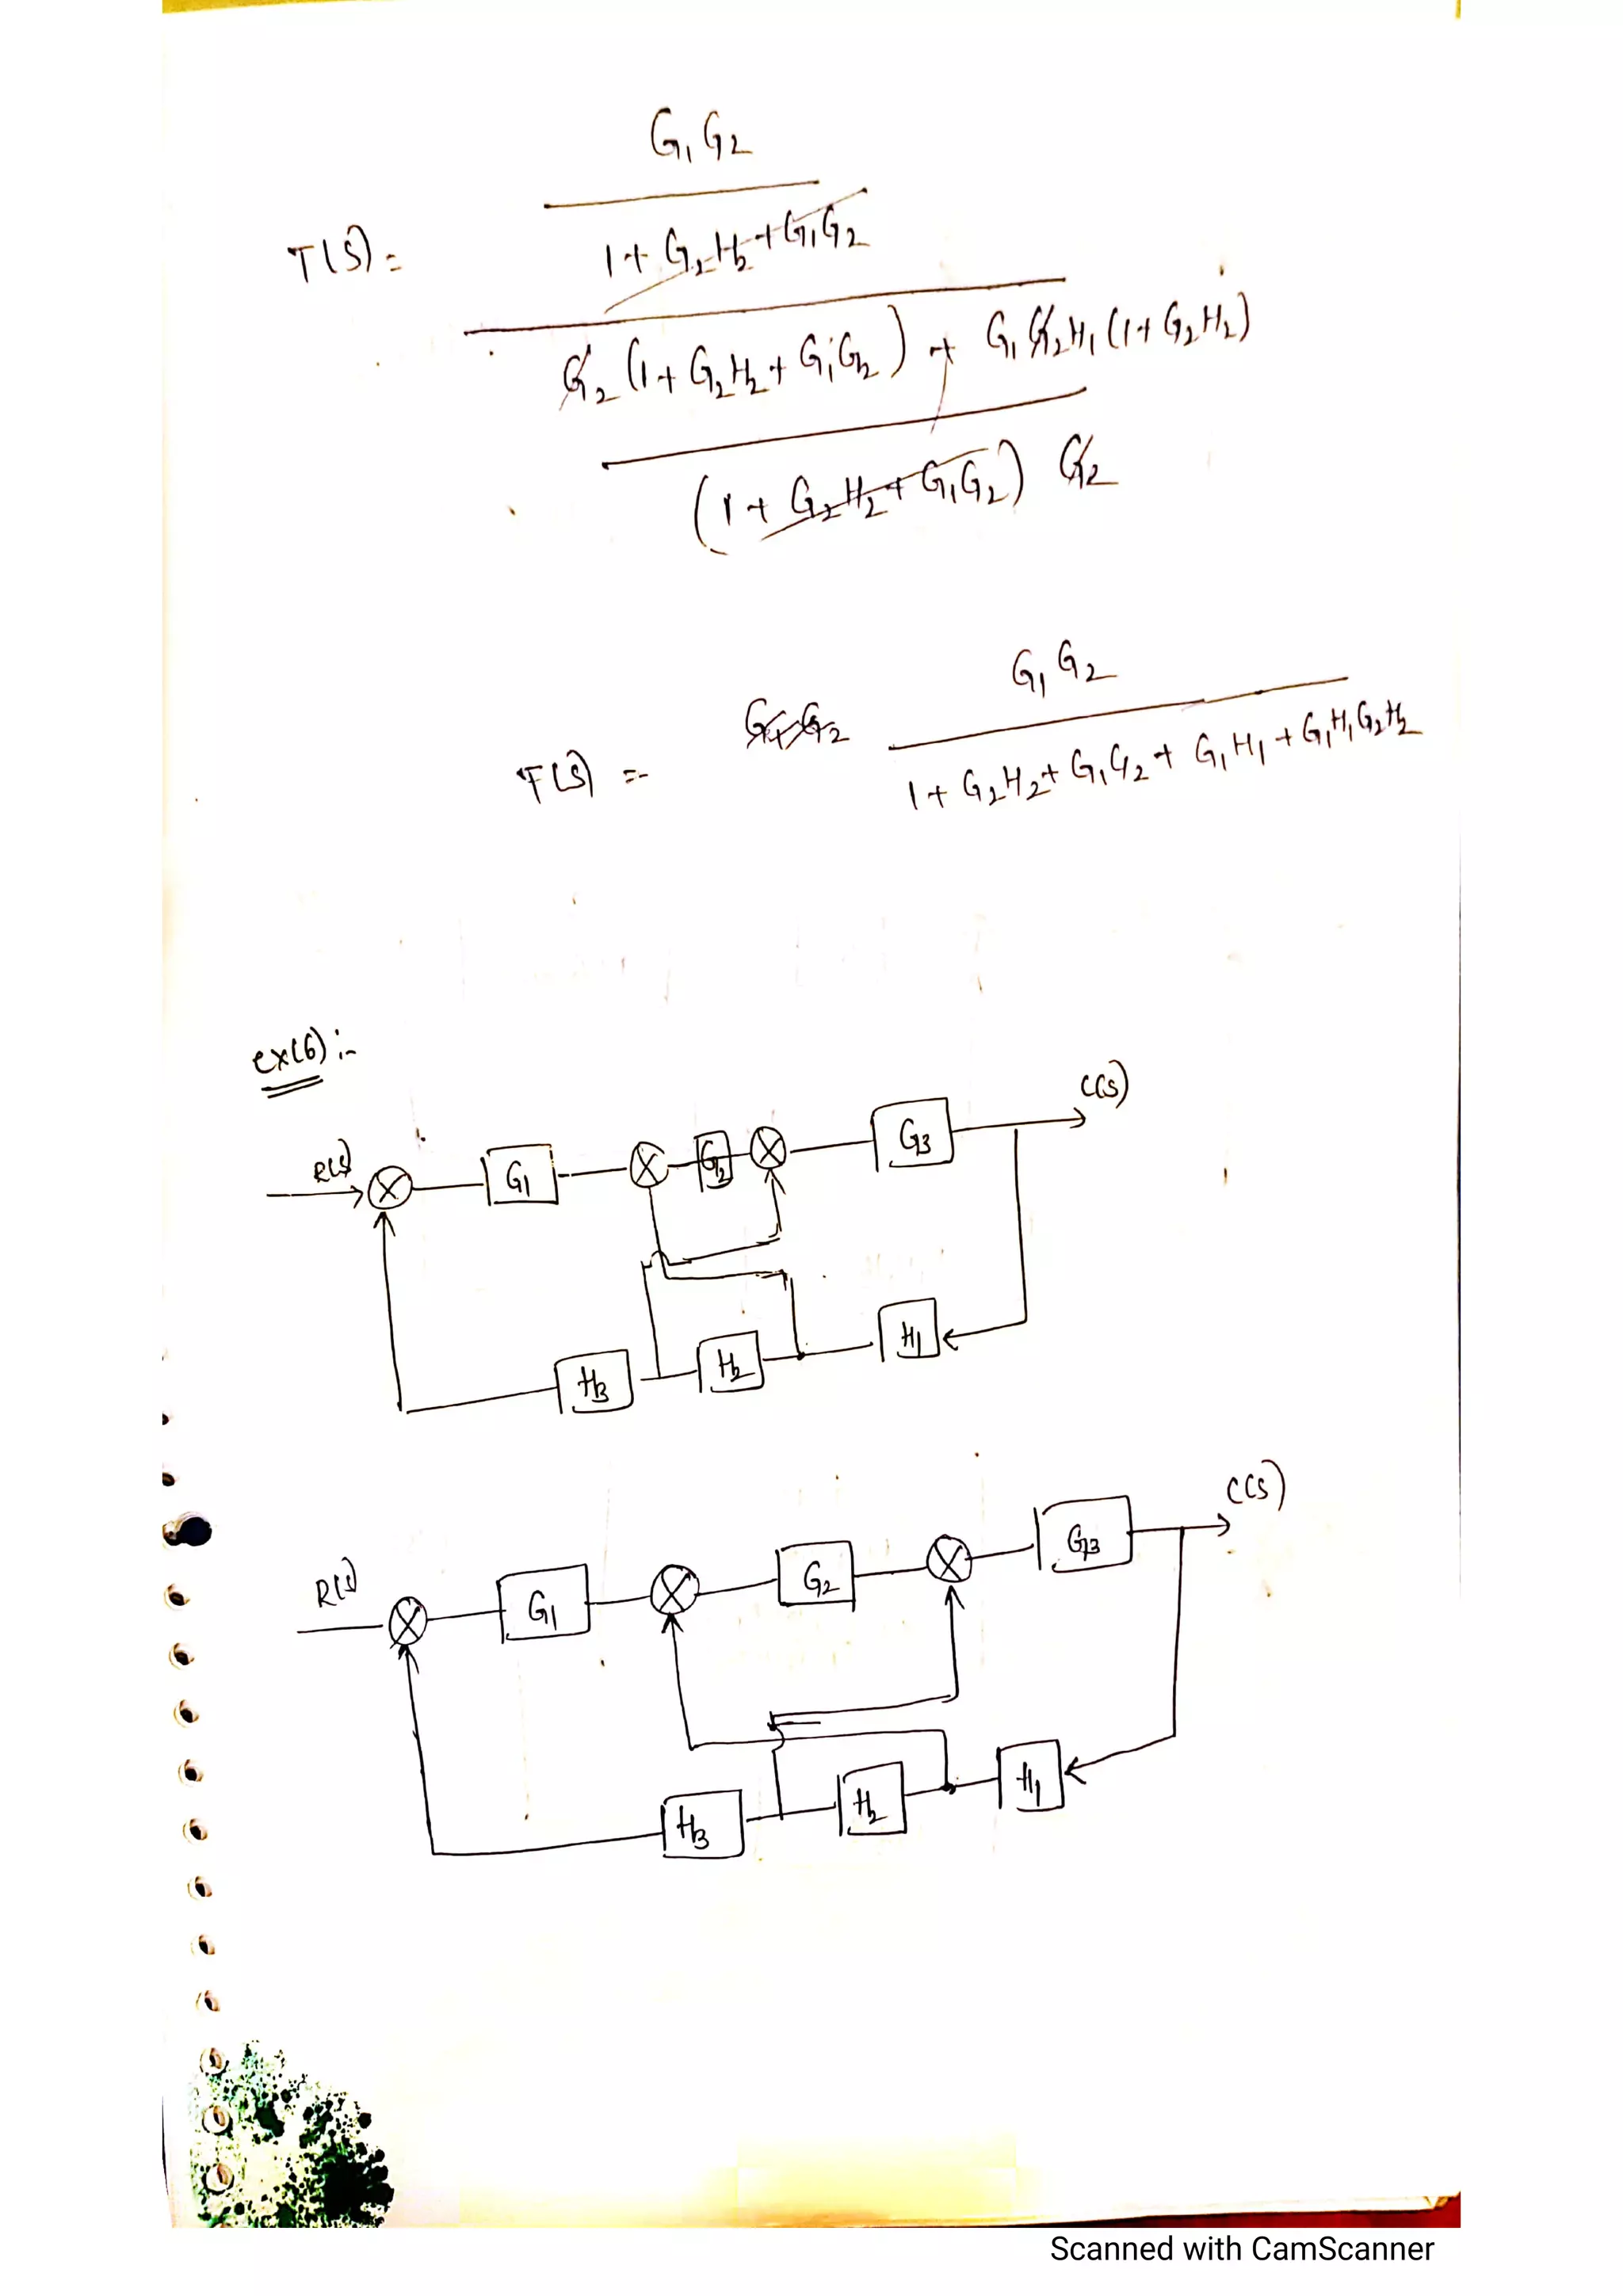 G₁G₂
1+G₂H₂+G₁G₂
T(S)=
G₂(1+G₂H₂+G₁G₂)+G₁G₂H₁(1+G₂H₂)
(1+G₂H₂+G₁G₂) G₂
G₁G₂
T(S) =- G₁G₂
1+G₂H₂+G₁G₂+G₁H₁+G₁H₁G₂H₂
ex(6):-
C(S)
R(S) G₁ G₂ G3
H3 H₂ H₁
C(S)
R(S) G₁ G₂ G3
H3 H₂ H₁
Scanned with CamScanner